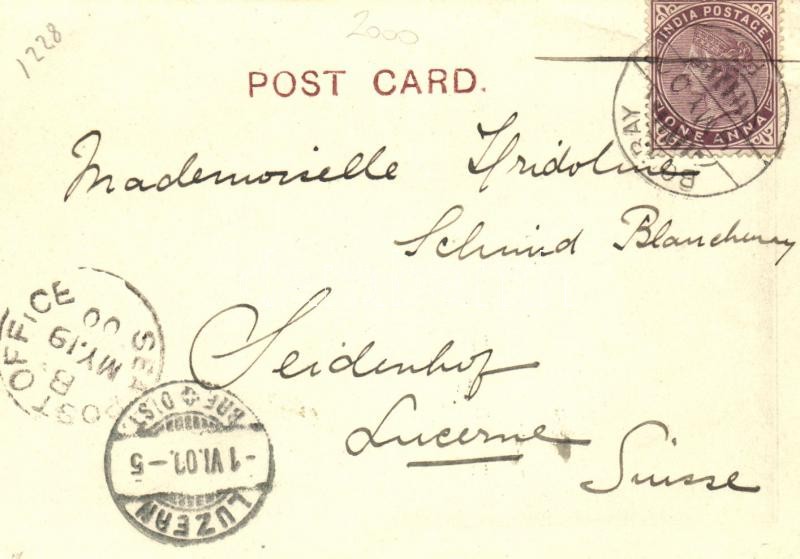 1228
2000
INDIA POSTAGE
ONE ANNA
BOMBAY
MY
POST CARD.
Mademoiselle Fridoline
Schmid Blancheney
Seidenhof
Lucerne
Suisse
SEA POST OFFICE
B.
MY.19
00
LUZERN
-1 VI.00.-5
BRF DIST.